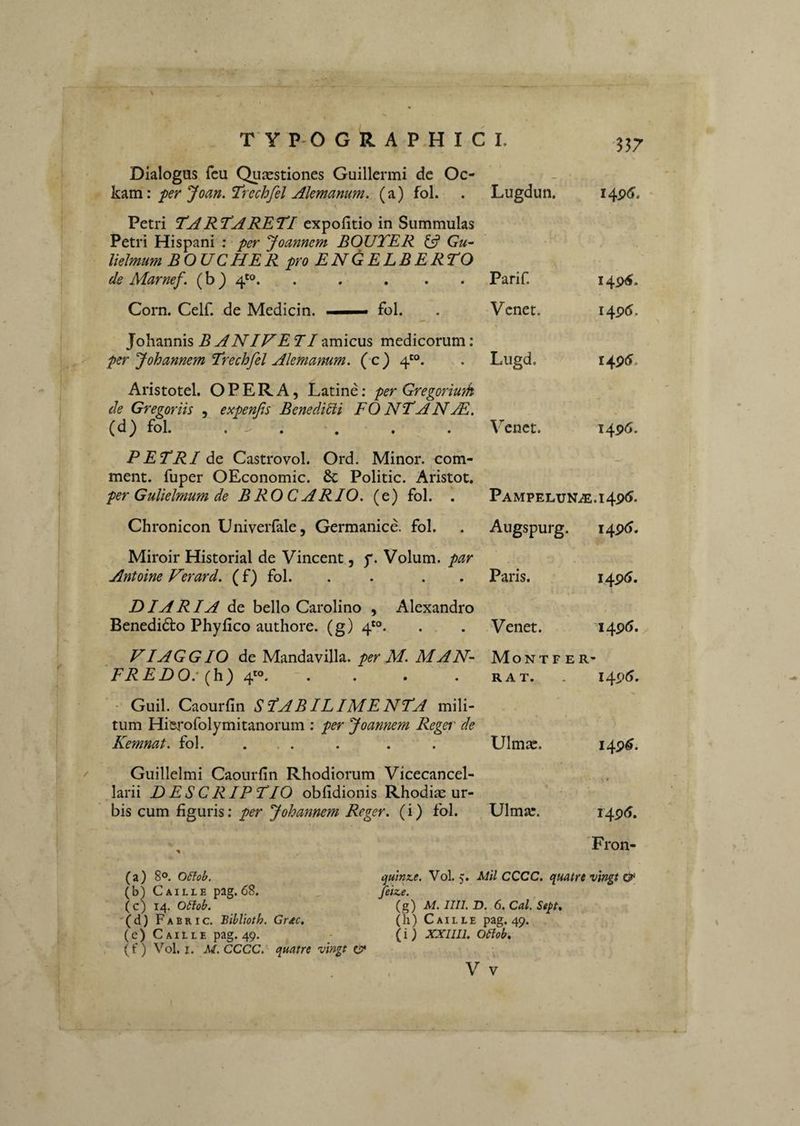 TYPOGRAPHICI. 337
Dialogus ſeu Quæstiones Guillermi de Oc-
kam: per Joan. Trechſel Alemanum. (a) fol. . Lugdun. 1496.
Petri TARTARETI expoſitio in Summulas
Petri Hispani : per Joannem BOUYER & Gu-
lielmum BOUCHER pro ENGELBERTO
de Marnef. (b) 4to. . . . . . Pariſ. 1496.
Corn. Celſ. de Medicin. —— fol. . Venet. 1496.
Johannis BANIVETI amicus medicorum:
per Johannem Trechſel Alemanum. (c) 4to. . Lugd. 1496.
Aristotel. OPERA, Latinè: per Gregorium
de Gregoriis , expenſis Benedicti FONTANÆ.
(d) fol. . . . . . . Venet. 1496.
PETRI de Castrovol. Ord. Minor. com-
ment. ſuper OEconomic. & Politic. Aristot.
per Gulielmum de BROCARIO. (e) fol. . PAMPELUNÆ.1496.
Chronicon Univerſale, Germanicè. fol. . Augspurg. 1496.
Miroir Historial de Vincent, 5. Volum. par
Antoine Verard. (f) fol. . . . . Paris. 1496.
DIARIA de bello Carolino , Alexandro
Benedicto Phyſico authore. (g) 4to. . . Venet. 1496.
VIAGGIO de Mandavilla. per M. MAN- MONTFER-
FREDO. (h) 4to. . . . . RAT. . 1496.
Guil. Caourſin STABILIMENTA mili-
tum Hieroſolymitanorum : per Joannem Reger de
Kemnat. fol. . . . . . Ulmæ. 1496.
Guillelmi Caourſin Rhodiorum Vicecancel-
larii DESCRIPTIO obſidionis Rhodiæ ur-
bis cum figuris: per Johannem Reger. (i) fol. Ulmæ. 1496.
Fron-
(a) 8°. Octob.
(b) CAILLE pag. 68.
(c) 14. Octob.
(d) FABRIC. Biblioth. Græc.
(e) CAILLE pag. 49.
(f) Vol. 1. M. CCCC. quatre vingt &
quinze. Vol. 5. Mil CCCC. quatre vingt &
ſeize.
(g) M. IIII. D. 6. Cal. Sept.
(h) CAILLE pag. 49.
(i) XXIIII. Octob.
V v